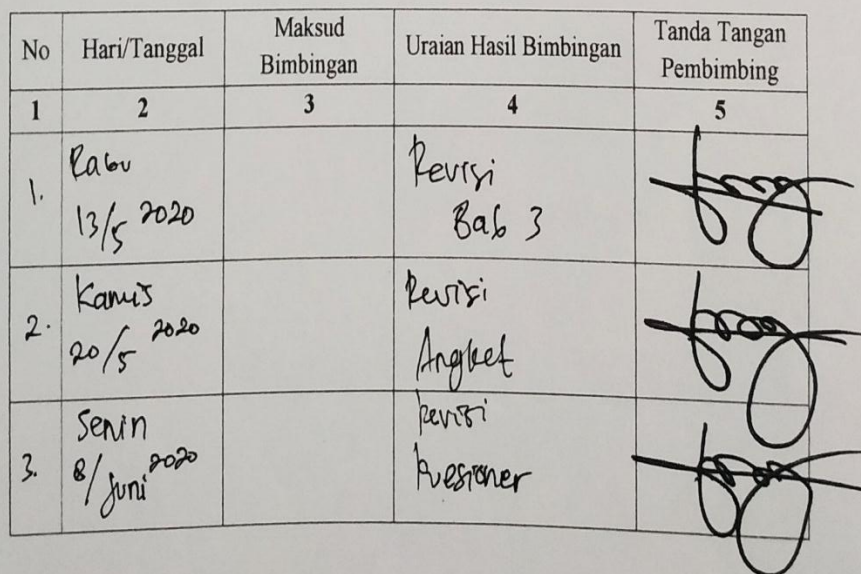 No Hari/Tanggal Maksud Bimbingan Uraian Hasil Bimbingan Tanda Tangan Pembimbing
1 2 3 4 5
1. Rabu 13/5 2020 Revisi Bab 3
2. Kamis 20/5 2020 Revisi Angket
3. Senin 8/Juni 2020 Revisi Kuesioner